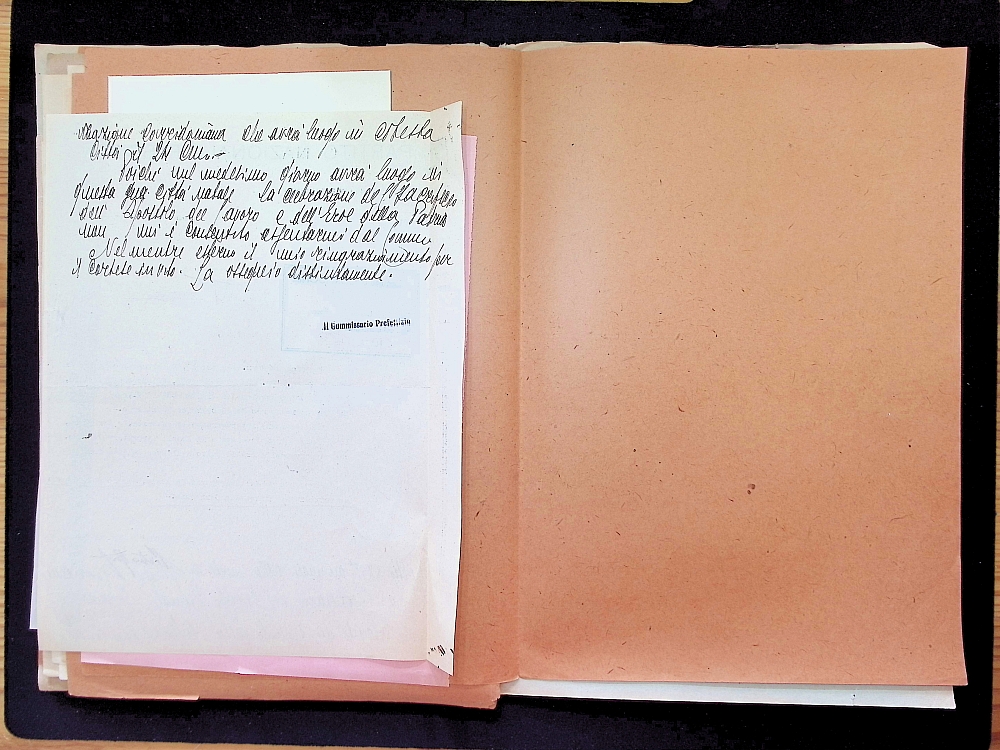 che avrà luogo in codesta
Città il 24 Corr.-
Poichè nel medesimo giorno avrà luogo in
questa Città natale la celebrazione del
dell'Apostolo del lavoro e dell'Eroe della Patria
non mi è consentito assentarmi dal Comune
Nel mentre esterno il mio ringraziamento per
il cortese invito. La ossequio distintamente.
Il Commissario Prefettizio